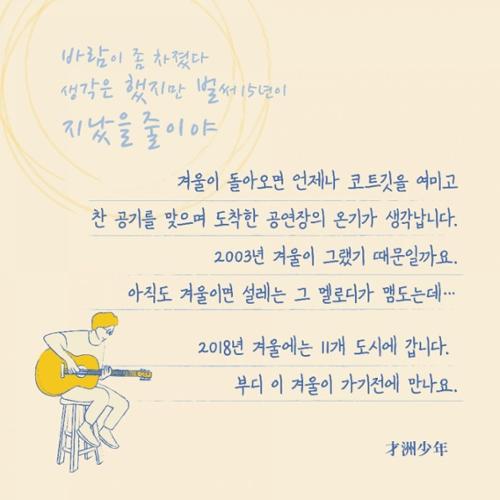 바람이 좀 차졌다
생각은 했지만 벌써 15년이
지났을 줄이야
겨울이 돌아오면 언제나 코트깃을 여미고
찬 공기를 맞으며 도착한 공연장의 온기가 생각납니다.
2003년 겨울이 그랬기 때문일까요.
아직도 겨울이면 설레는 그 멜로디가 맴도는데…
2018년 겨울에는 11개 도시에 갑니다.
부디 이 겨울이 가기전에 만나요.
才洲少年